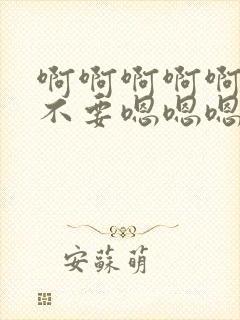 啊啊啊啊啊
不要嗯嗯嗯
安蘇萌